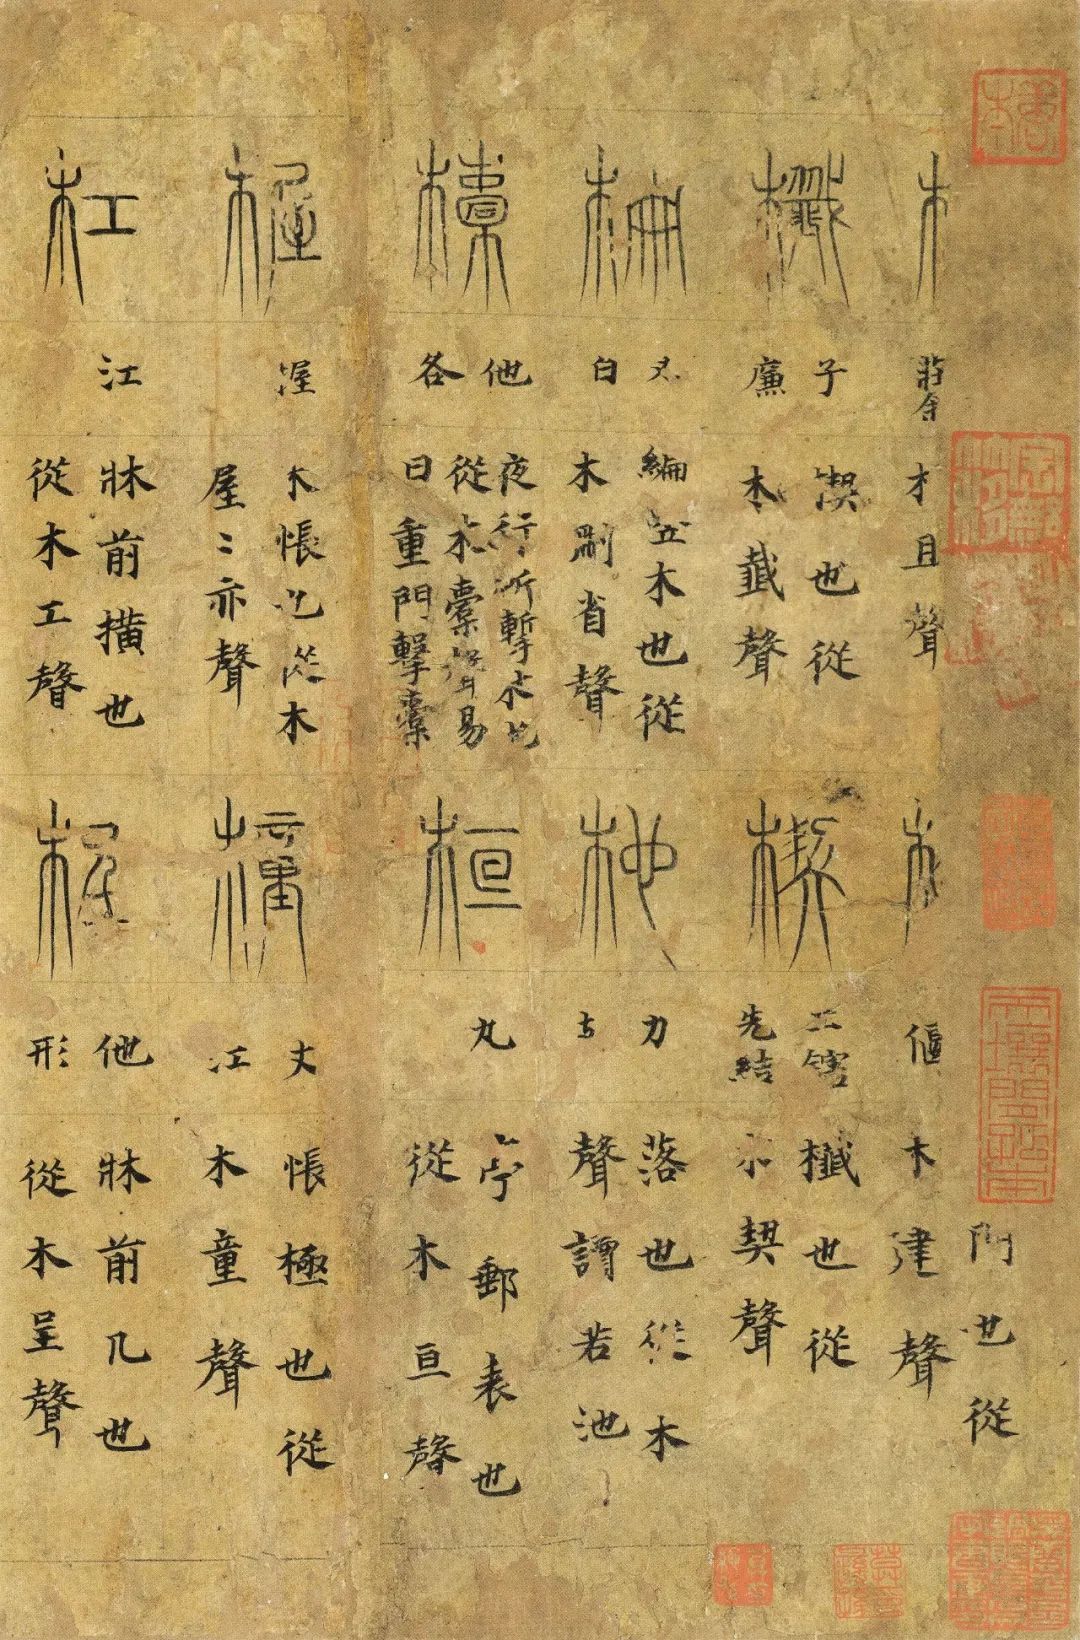 莊余
木且聲
櫼
子
廉
楔也從
木韱聲
柵
白
編竪木也從
木刪省聲
橐
他
各
夜行所擊木也
從木橐聲易
曰重門擊橐
楃
渥
木帳也從木
屋〻亦聲
杠
江
牀前橫也
從木工聲
偃
門也從
木建聲
楔
先結
櫼也從
木契聲
杝
力
落也從木
聲讀若池
桓
丸
亭郵表也
從木亘聲
橦
丈
江
帳極也從
木童聲
桯
他
形
牀前几也
從木呈聲